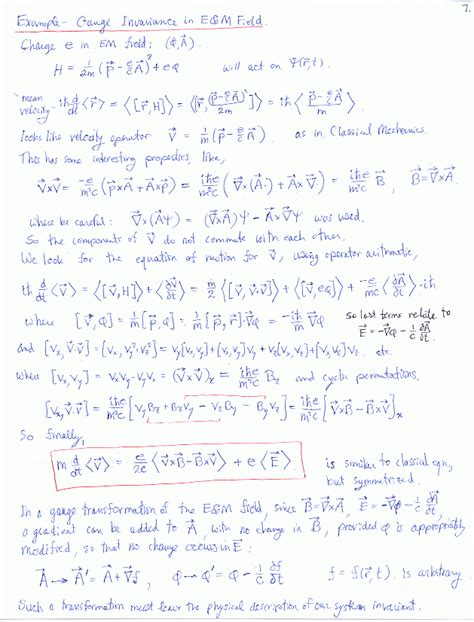 7.
Example - Gauge Invariance in E&M Field.
Charge e in EM field: (φ, A⃗).
H = 1/2m (p⃗ - e/c A⃗)² + eφ will act on Ψ(r⃗,t).
"mean velocity" iħ d/dt <r⃗> = <[r⃗,H]> = <[r⃗, (p⃗ - e/c A⃗)²/2m]> = iħ <(p⃗ - e/c A⃗)/m>
looks like velocity operator V⃗ = 1/m (p⃗ - e/c A⃗) as in Classical Mechanics.
This has some interesting properties, like,
V⃗×V⃗ = -e/m²c (p⃗×A⃗ + A⃗×p⃗) = iħe/m²c (∇⃗×(A⃗·) + A⃗×∇⃗·) = iħe/m²c B⃗, B⃗ = ∇⃗×A⃗
where be careful: ∇⃗×(A⃗Ψ) = (∇⃗×A⃗)Ψ - A⃗×∇⃗Ψ was used.
So the components of V⃗ do not commute with each other.
We look for the equation of motion for V⃗, using operator arithmetic,
iħ d/dt <V⃗> = <[V⃗,H]> + <∂V⃗/∂t> = m/2 <[V⃗, V⃗·V⃗]> + <[V⃗, eφ]> + -e/mc <∂A⃗/∂t>·iħ
where [V⃗,φ] = 1/m [p⃗,φ] = 1/m [p⃗,r⃗]·∇⃗φ = -iħ/m ∇⃗φ so last terms relate to E⃗ = -∇⃗φ - 1/c ∂A⃗/∂t
and [Vx, V⃗·V⃗] = [Vx, Vy²+Vz²] = Vy[Vx,Vy] + [Vx,Vy]Vy + Vz[Vx,Vz] + [Vx,Vz]Vz etc.
where [Vx,Vy] = VxVy - VyVx = (V⃗×V⃗)z = iħe/m²c Bz and cyclic permutations.
[Vx, V⃗·V⃗] = iħe/m²c [VyBz + BzVy - VzBy - ByVz] = iħe/m²c [V⃗×B⃗ - B⃗×V⃗]x
So finally,
m d/dt <V⃗> = e/2c <V⃗×B⃗ - B⃗×V⃗> + e <E⃗> is similar to classical eqn, but symmetrized.
In a gauge transformation of the E&M field, since B⃗ = ∇⃗×A⃗, E⃗ = -∇⃗φ - 1/c ∂A⃗/∂t,
a gradient can be added to A⃗, with no change in B⃗, provided φ is appropriately
modified, so that no change occurs in E⃗:
A⃗ → A⃗' = A⃗ + ∇⃗f, φ → φ' = φ - 1/c ∂f/∂t f = f(r⃗,t). is arbitrary.
Such a transformation must leave the physical description of our system invariant.